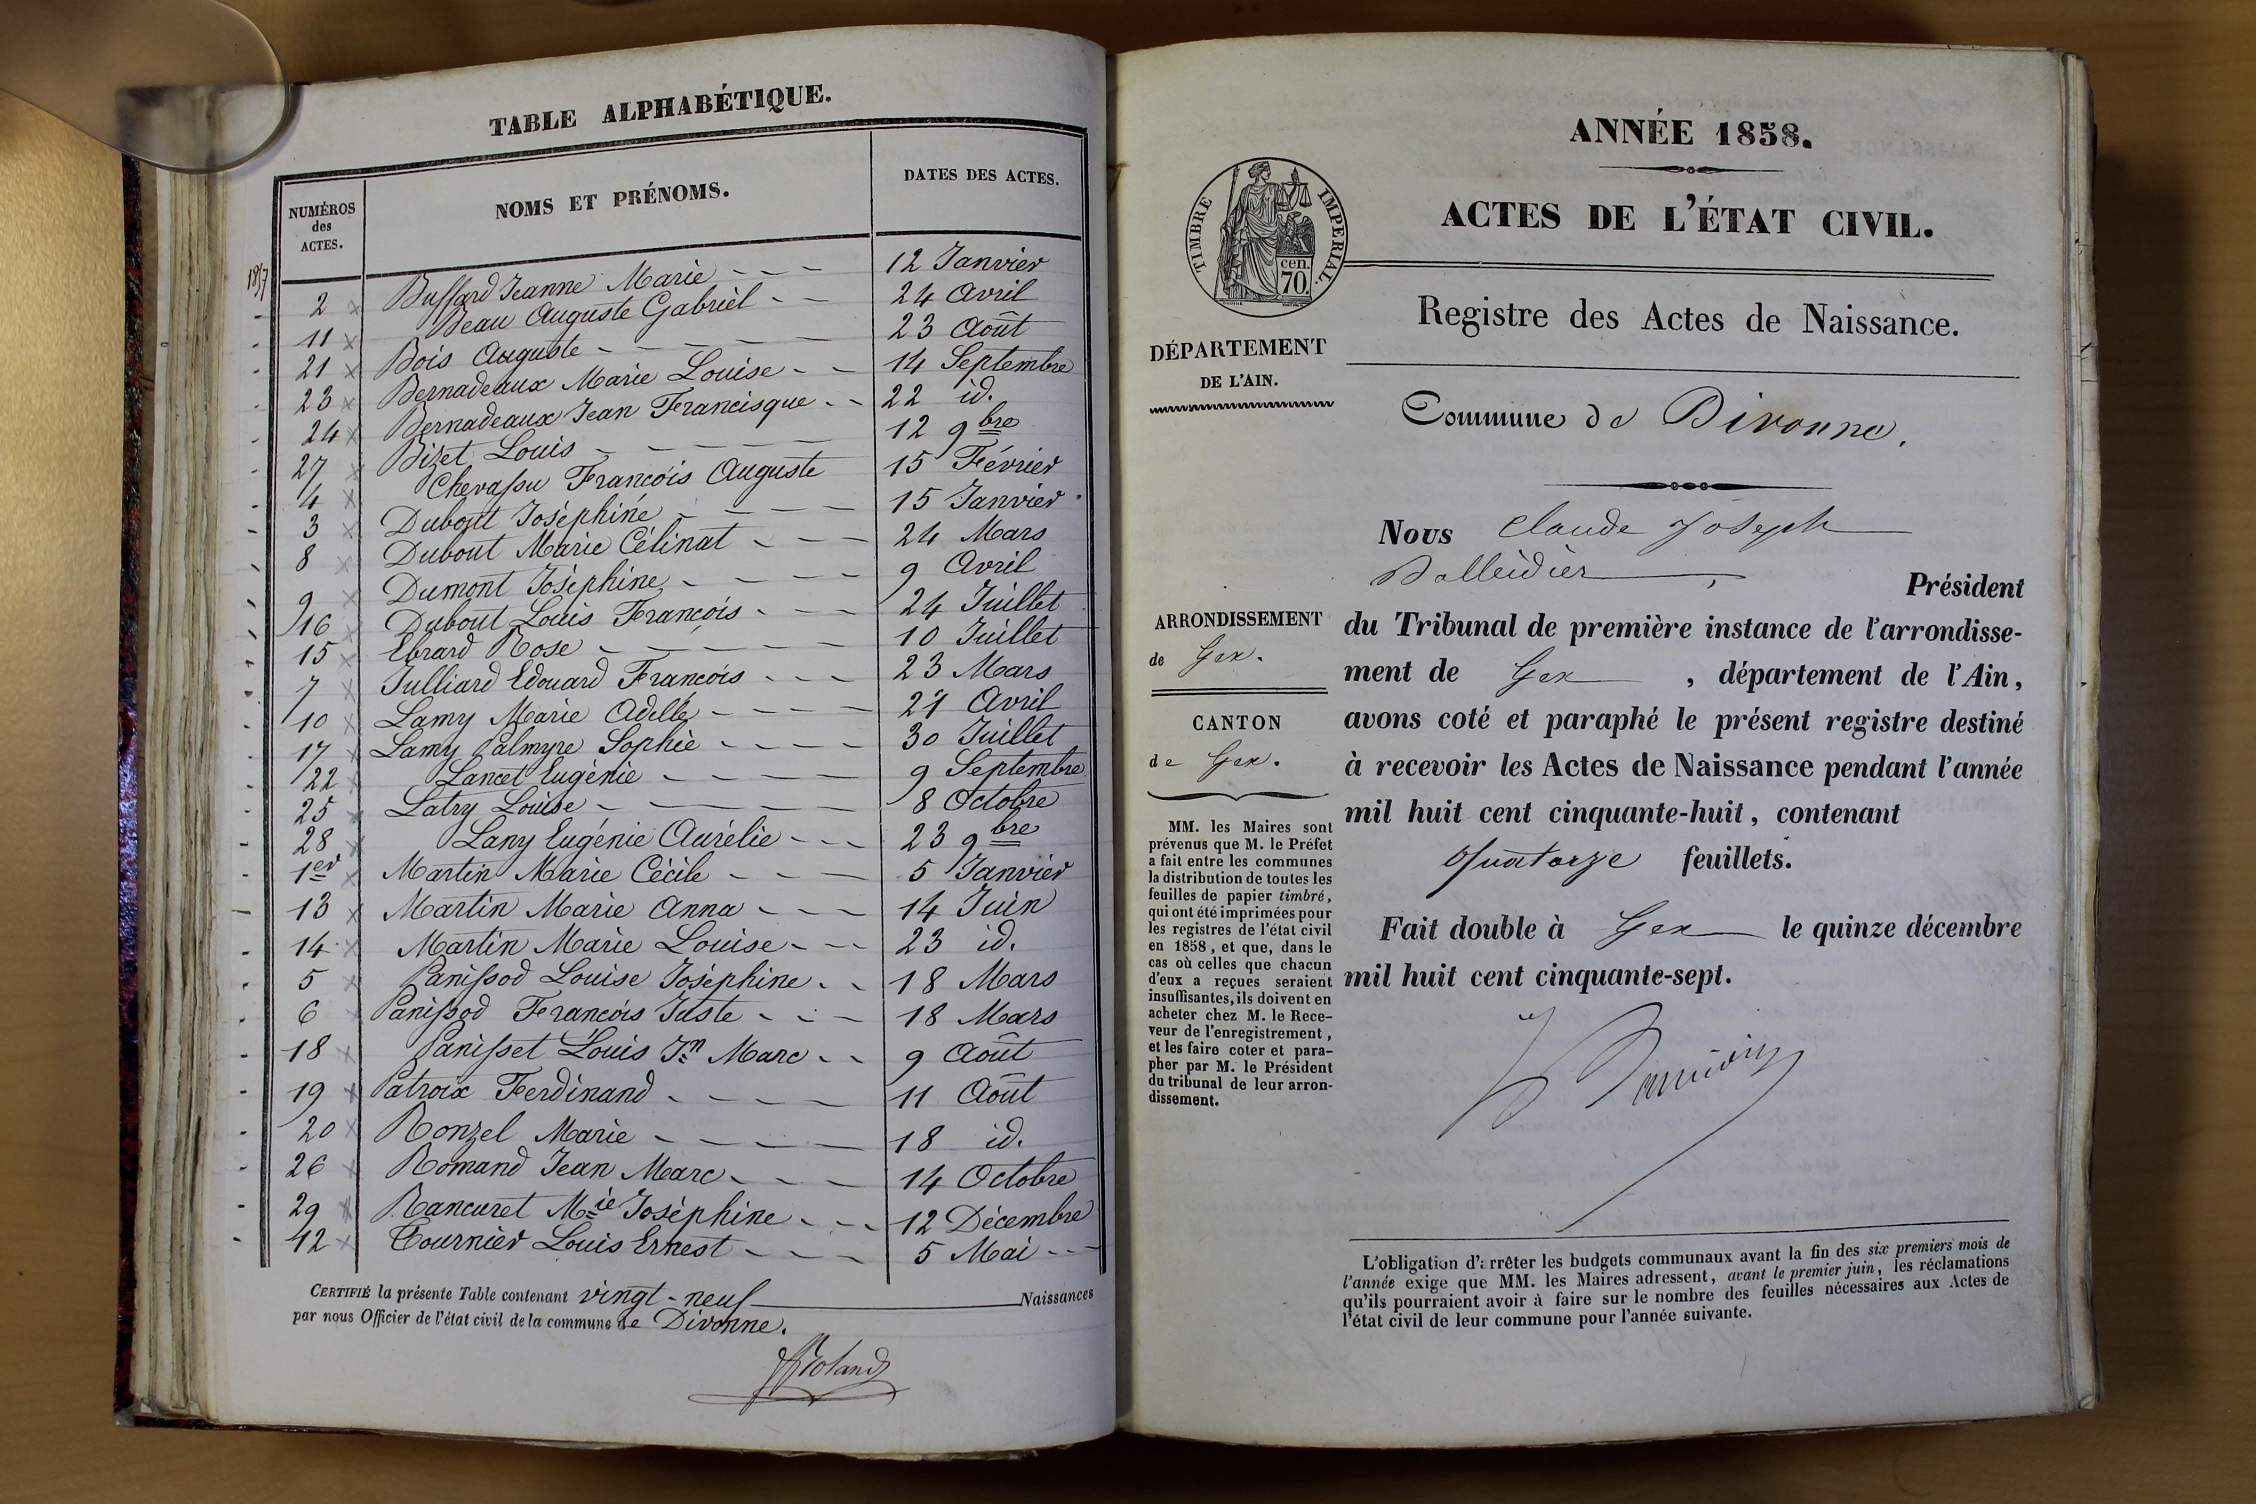 TABLE ALPHABÉTIQUE.
NUMÉROS des ACTES. NOMS ET PRÉNOMS. DATES DES ACTES.
1857
2 Buffard Jeanne Marie 12 Janvier
11 Beau Auguste Gabriel 24 Avril
21 Bois Auguste 23 Août
23 Bernadeaux Marie Louise 14 Septembre
24 Bernadeaux Jean Francisque 22 id.
27 Bizet Louis 12 9bre
4 Chevassu François Auguste 15 Février
3 Dubout Joséphine 15 Janvier
8 Dubout Marie Célinat 24 Mars
9 Dumont Joséphine 9 Avril
16 Dubout Louis François 24 Juillet
15 Ebrard Rose 10 Juillet
7 Julliard Edouard François 23 Mars
10 Lamy Marie Adelle Avril
17 Lamy Palmyre Sophie 30 Juillet
22 Lancet Eugénie 9 Septembre
25 Latry Louise 8 Octobre
28 Lany Eugénie Aurélie 23 9bre
1er Martin Marie Cécile 5 Janvier
13 Martin Marie Anna 14 Juin
14 Martin Marie Louise 23 id.
5 Panissod Louise Joséphine 18 Mars
6 Panissod François Juste 18 Mars
18 Panisset Louis Jn Marc 9 Août
19 Patroix Ferdinand 11 Août
20 Ronzel Marie 18 id.
26 Romand Jean Marc 14 Octobre
29 Rancuret Mie Joséphine 12 Décembre
12 Tournier Louis Ernest 5 Mai
CERTIFIÉ la présente Table contenant vingt-neuf Naissances
par nous Officier de l'état civil de la commune de Divonne.
Roland
ANNÉE 1858.
ACTES DE L'ÉTAT CIVIL.
TIMBRE IMPÉRIAL.
cen.
70.
Registre des Actes de Naissance.
DÉPARTEMENT
DE L'AIN.
Commune de Divonne.
ARRONDISSEMENT
de Gex.
CANTON
de Gex.
MM. les Maires sont
prévenus que M. le Préfet
a fait entre les communes
la distribution de toutes les
feuilles de papier timbré,
qui ont été imprimées pour
les registres de l'état civil
en 1858, et que, dans le
cas où celles que chacun
d'eux a reçues seraient
insuffisantes, ils doivent en
acheter chez M. le Rece-
veur de l'enregistrement,
et les faire coter et para-
pher par M. le Président
du tribunal de leur arron-
dissement.
Nous Claude Joseph
Balleidier, Président
du Tribunal de première instance de l'arrondisse-
ment de Gex, département de l'Ain,
avons coté et paraphé le présent registre destiné
à recevoir les Actes de Naissance pendant l'année
mil huit cent cinquante-huit, contenant
Quatorze feuillets.
Fait double à Gex le quinze décembre
mil huit cent cinquante-sept.
L'obligation d'arrêter les budgets communaux avant la fin des six premiers mois de
l'année exige que MM. les Maires adressent, avant le premier juin, les réclamations
qu'ils pourraient avoir à faire sur le nombre des feuilles nécessaires aux Actes de
l'état civil de leur commune pour l'année suivante.